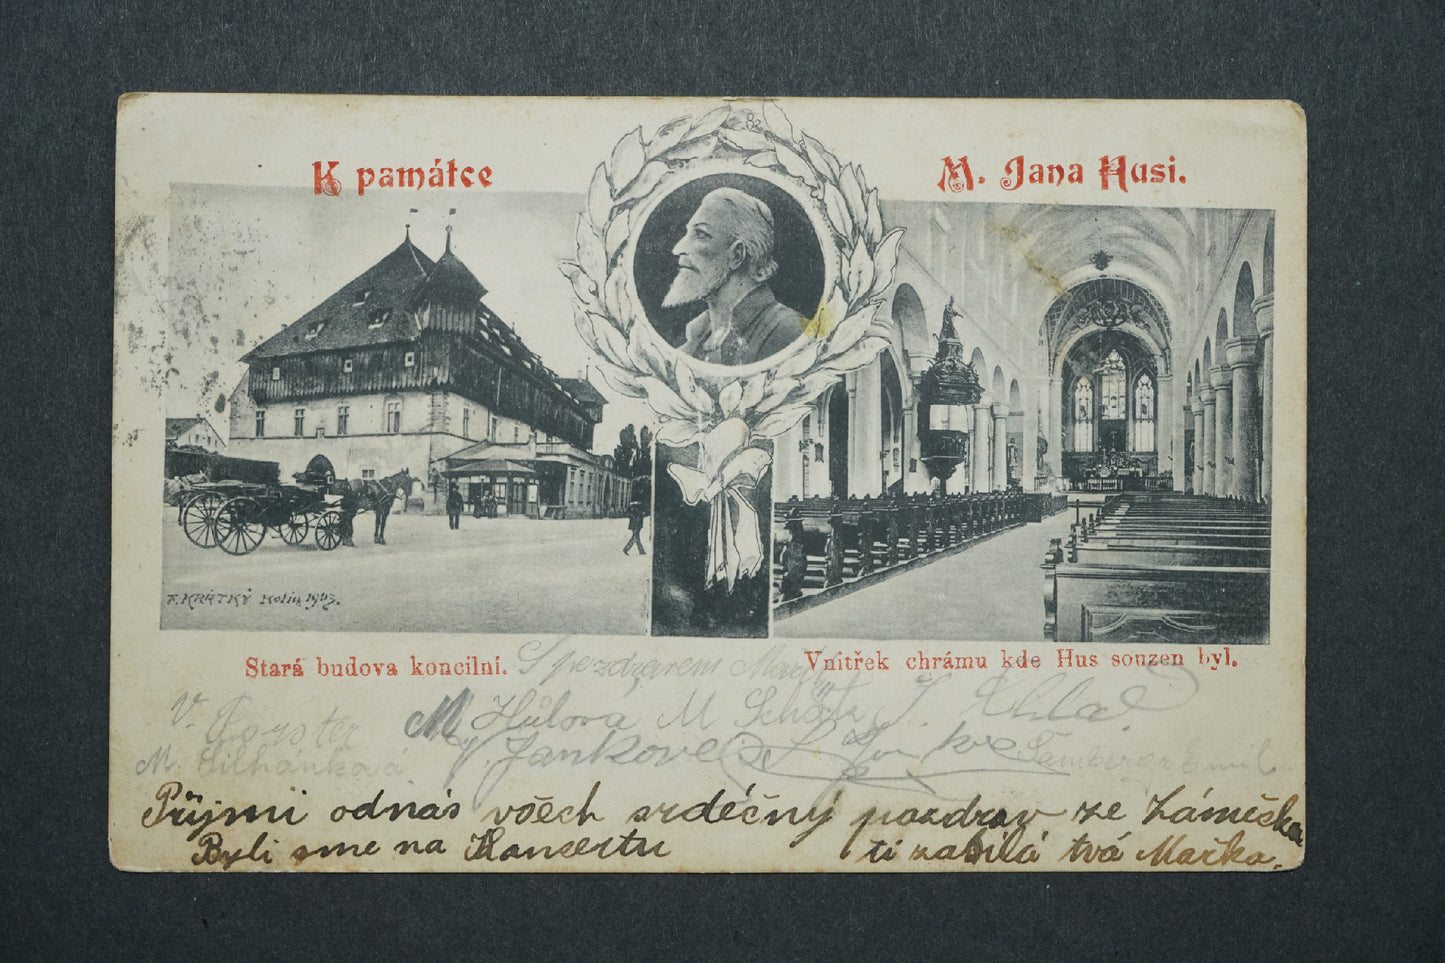 K památce
M. Jana Husi.
F. KRÁTKÝ Kolín 1903.
Stará budova koncilní.
Vnitřek chrámu kde Hus souzen byl.
S pozdravem
V. Forster
M. Hůlova M Schätz J.
M. Silhánková
V. Jankovec
Šamberger Emil
Přijmi odnás všech srdéčný pozdrav ze Zámečka
Byli sme na Koncertu
ti zasílá tvá Mařka.